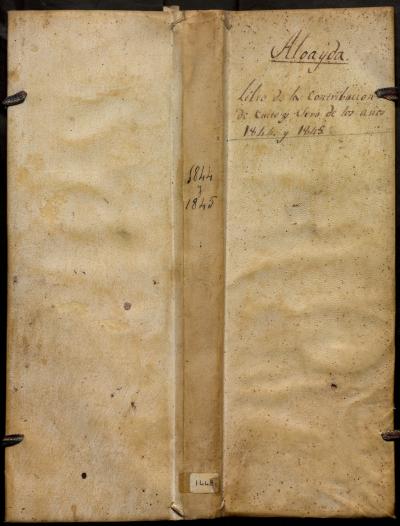 Alcayda.
Libro de la Contribucion
de Culto y Clero de los años
1844. y 1845.
1844
y
1845